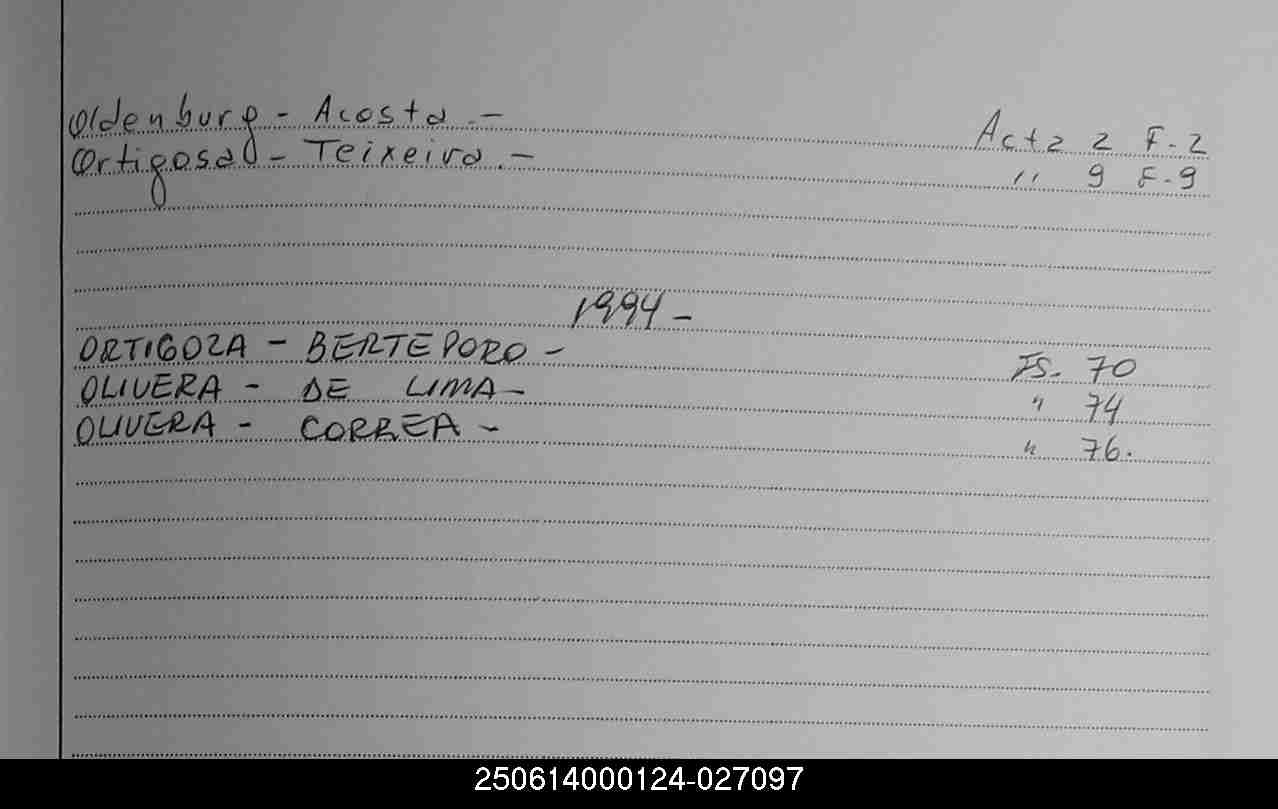 Oldenburg - Acosta.- Acta 2 F-2
Ortigosa - Teixeira.- " 9 F-9
1994-
ORTIGOZA - BERTEPORO - FS. 70
OLIVERA - DE LIMA - " 74
OLIVERA - CORREA - " 76.
250614000124-027097